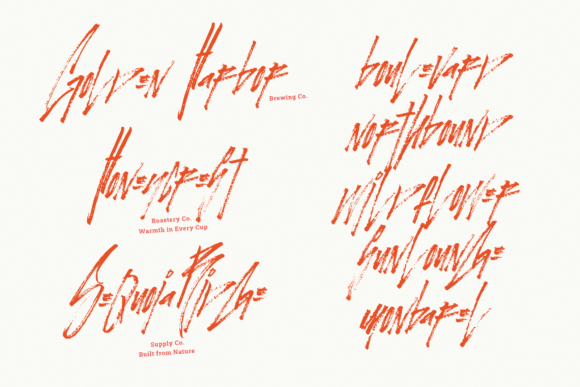 Golden Harbor
Brewing Co.
Honeycraft
Roastery Co.
Warmth in Every Cup
Sequoia Ridge
Supply Co.
Built from Nature
boulevard
northbound
wildflower
sunlounge